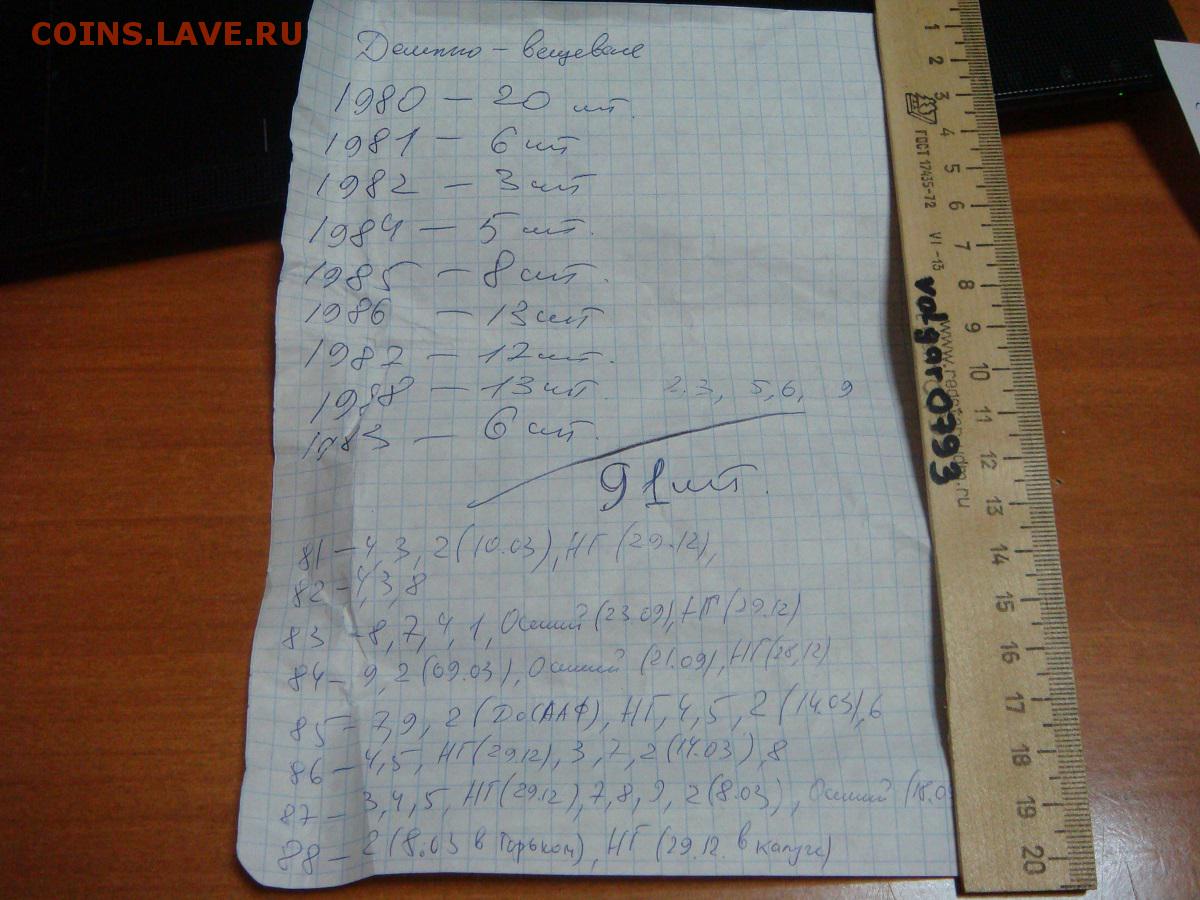 COINS.LAVE.RU
Денежно - вещевые
1980 - 20 шт.
1981 - 6 шт
1982 - 3 шт
1984 - 5 шт.
1985 - 8 шт.
1986 - 13 шт
1987 - 12 шт.
1988 - 13 шт. 2,3, 5,6, 9
1983 - 6 шт.
91 шт.
81 - 4, 3, 2 (10.03), НГ (29.12),
82 - 4, 3, 8
83 - 8, 7, 4, 1, Осенний (23.09), НГ (29.12)
84 - 9, 2 (09.03), Осенний (21.09), НГ (28.12)
85 - 7, 9, 2 (ДОСААФ), НГ, 4, 5, 2 (14.03), 6
86 - 4, 5, НГ (29.12), 3, 7, 2 (14.03), 8
87 - 3, 4, 5, НГ (29.12), 7, 8, 9, 2 (8.03), Осенний (18.0
88 - 2 (8.03 в Горьком), НГ (29.12. в Калуге)
1 2 3 4 5 6 7 8 9 10 11 12 13 14 15 16 17 18 19 20
ГОСТ 17435-72 VI-13
volgar0793